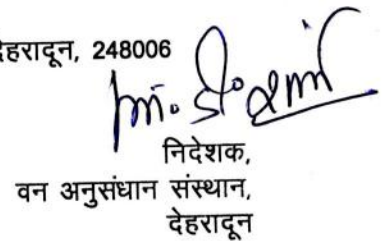 देहरादून, 248006
निदेशक,
वन अनुसंधान संस्थान,
देहरादून